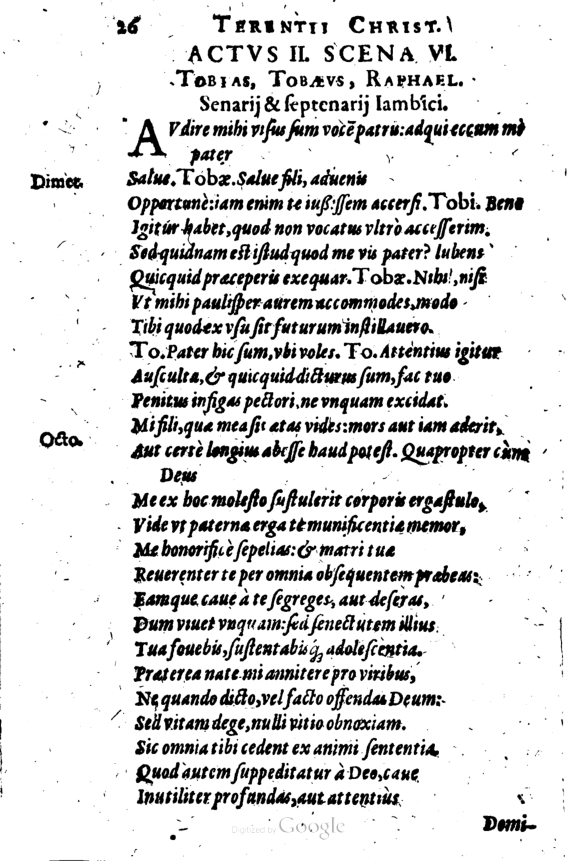 26 TERENTII CHRIST.
ACTVS II. SCENA VI.
TOBIAS, TOBÆVS, RAPHAEL.
Senarij & septenarij Iambici.
AVdire mihi visus sum vocē patris: adqui eccum mō
pater
Dimet. Salue. Tobæ. Salue fili, aduenis
Opportunè: iam enim te iußissem accersi. Tobi. Bene
Igitur habet, quod non vocatus vltrò accesserim.
Sed quidnam est istud quod me vis pater? lubens
Quicquid præceperis exequar. Tobæ. Nihil, nisi
Vt mihi paulisper aurem accommodes, modo
Tibi quod ex vsu sit futurum instillauero.
To. Pater hic sum, vbi voles. To. Attentius igitur
Ausculta, & quicquid dicturus sum, fac tuo
Penitus infigas pectori, ne vnquam excidat.
Mi fili, quæ mea sit ætas vides: mors aut iam aderit,
Octo. Aut certè longius abesse haud potest. Quapropter cùm
Deus
Me ex hoc molesto sustulerit corporis ergastulo,
Vide vt paternæ erga te munificentiæ memor,
Me honorificè sepelias: & matri tuæ
Reuerenter te per omnia obsequentem præbeas:
Eamque caue à te segreges, aut deseras,
Dum viuet vnquam: sed senectutem illius
Tua fouebis, sustentabisq́; adolescentia.
Præterea nate mi annitere pro viribus,
Ne quando dicto, vel facto offendas Deum:
Sed vitam dege, nulli vitio obnoxiam.
Sic omnia tibi cedent ex animi sententia.
Quod autem suppeditatur à Deo, caue
Inutiliter profundas, aut attentiùs
Domi-
Digitized by Google